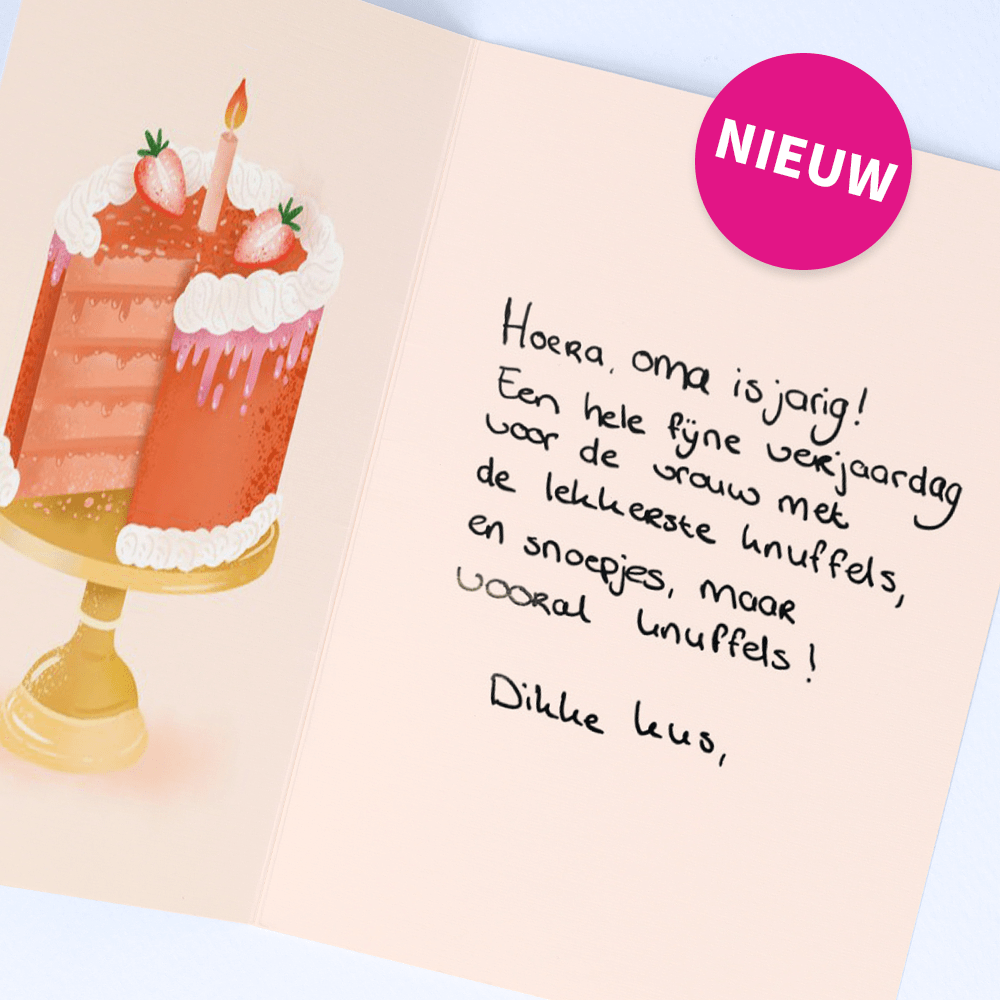 NIEUW
Hoera, oma is jarig!
Een hele fijne verjaardag
voor de vrouw met
de lekkerste knuffels,
en snoepjes, maar
vooral knuffels!
Dikke kus,